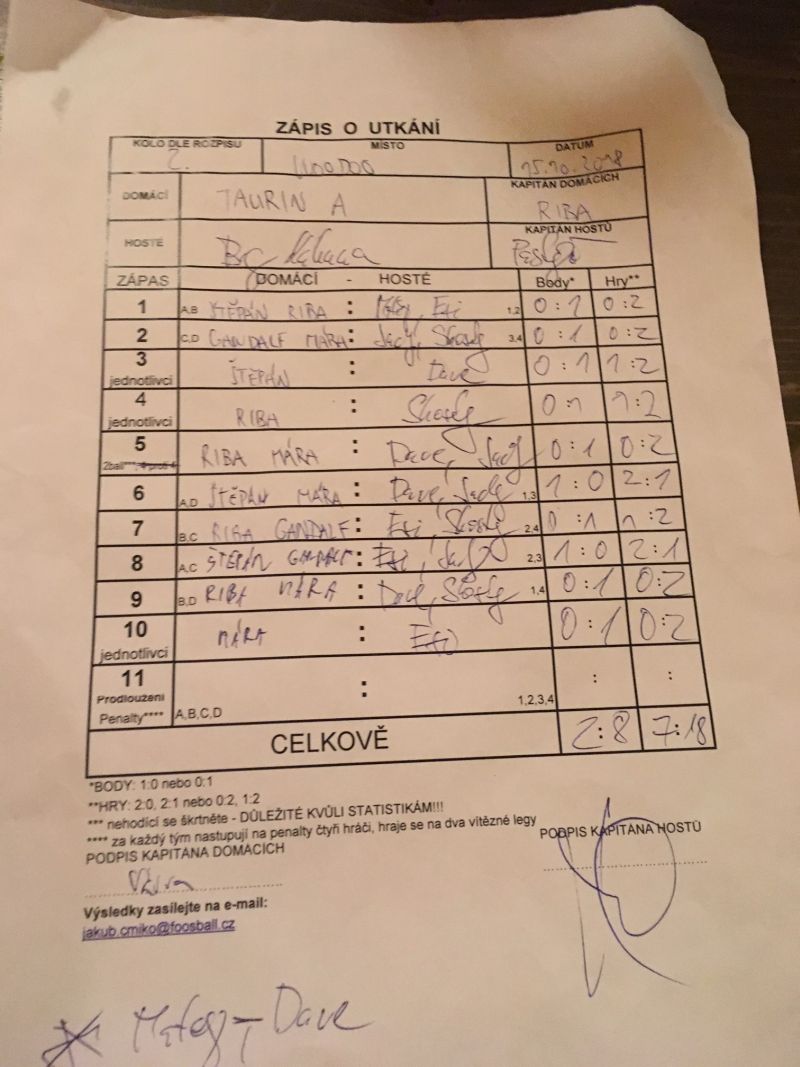 ZÁPIS O UTKÁNÍ
KOLO DLE ROZPISU MÍSTO DATUM
2. VOODOO 15.10.2018
DOMÁCÍ TAURIN A KAPITÁN DOMÁCÍCH
RIBA
HOSTÉ BC KAPITÁN HOSTŮ
ZÁPAS DOMÁCÍ - HOSTÉ Body* Hry**
1 A,B ŠTĚPÁN RIBA : 1,2 0:1 0:2
2 C,D GANDALF MÁRA : 3,4 0:1 0:2
3 jednotlivci ŠTĚPÁN : Dave 0:1 1:2
4 jednotlivci RIBA : 0:1 1:2
5 2ball***, 4 proti 4 RIBA MÁRA : Dave, 0:1 0:2
6 A,D ŠTĚPÁN MÁRA : Dave, 1,3 1:0 2:1
7 B,C RIBA GANDALF : 2,4 0:1 1:2
8 A,C ŠTĚPÁN GANDALF : 2,3 1:0 2:1
9 B,D RIBA MÁRA : Dave, 1,4 0:1 0:2
10 jednotlivci MÁRA : 0:1 0:2
11 Prodloužení Penalty**** A,B,C,D : 1,2,3,4 : :
CELKOVĚ 2:8 7:18
*BODY: 1:0 nebo 0:1
**HRY: 2:0, 2:1 nebo 0:2, 1:2
*** nehodící se škrtněte - DŮLEŽITÉ KVŮLI STATISTIKÁM!!!
**** za každý tým nastupují na penalty čtyři hráči, hraje se na dva vítězné legy
PODPIS KAPITÁNA DOMÁCÍCH PODPIS KAPITÁNA HOSTŮ
Výsledky zasílejte na e-mail:
jakub.cmiko@foosball.cz
Dave